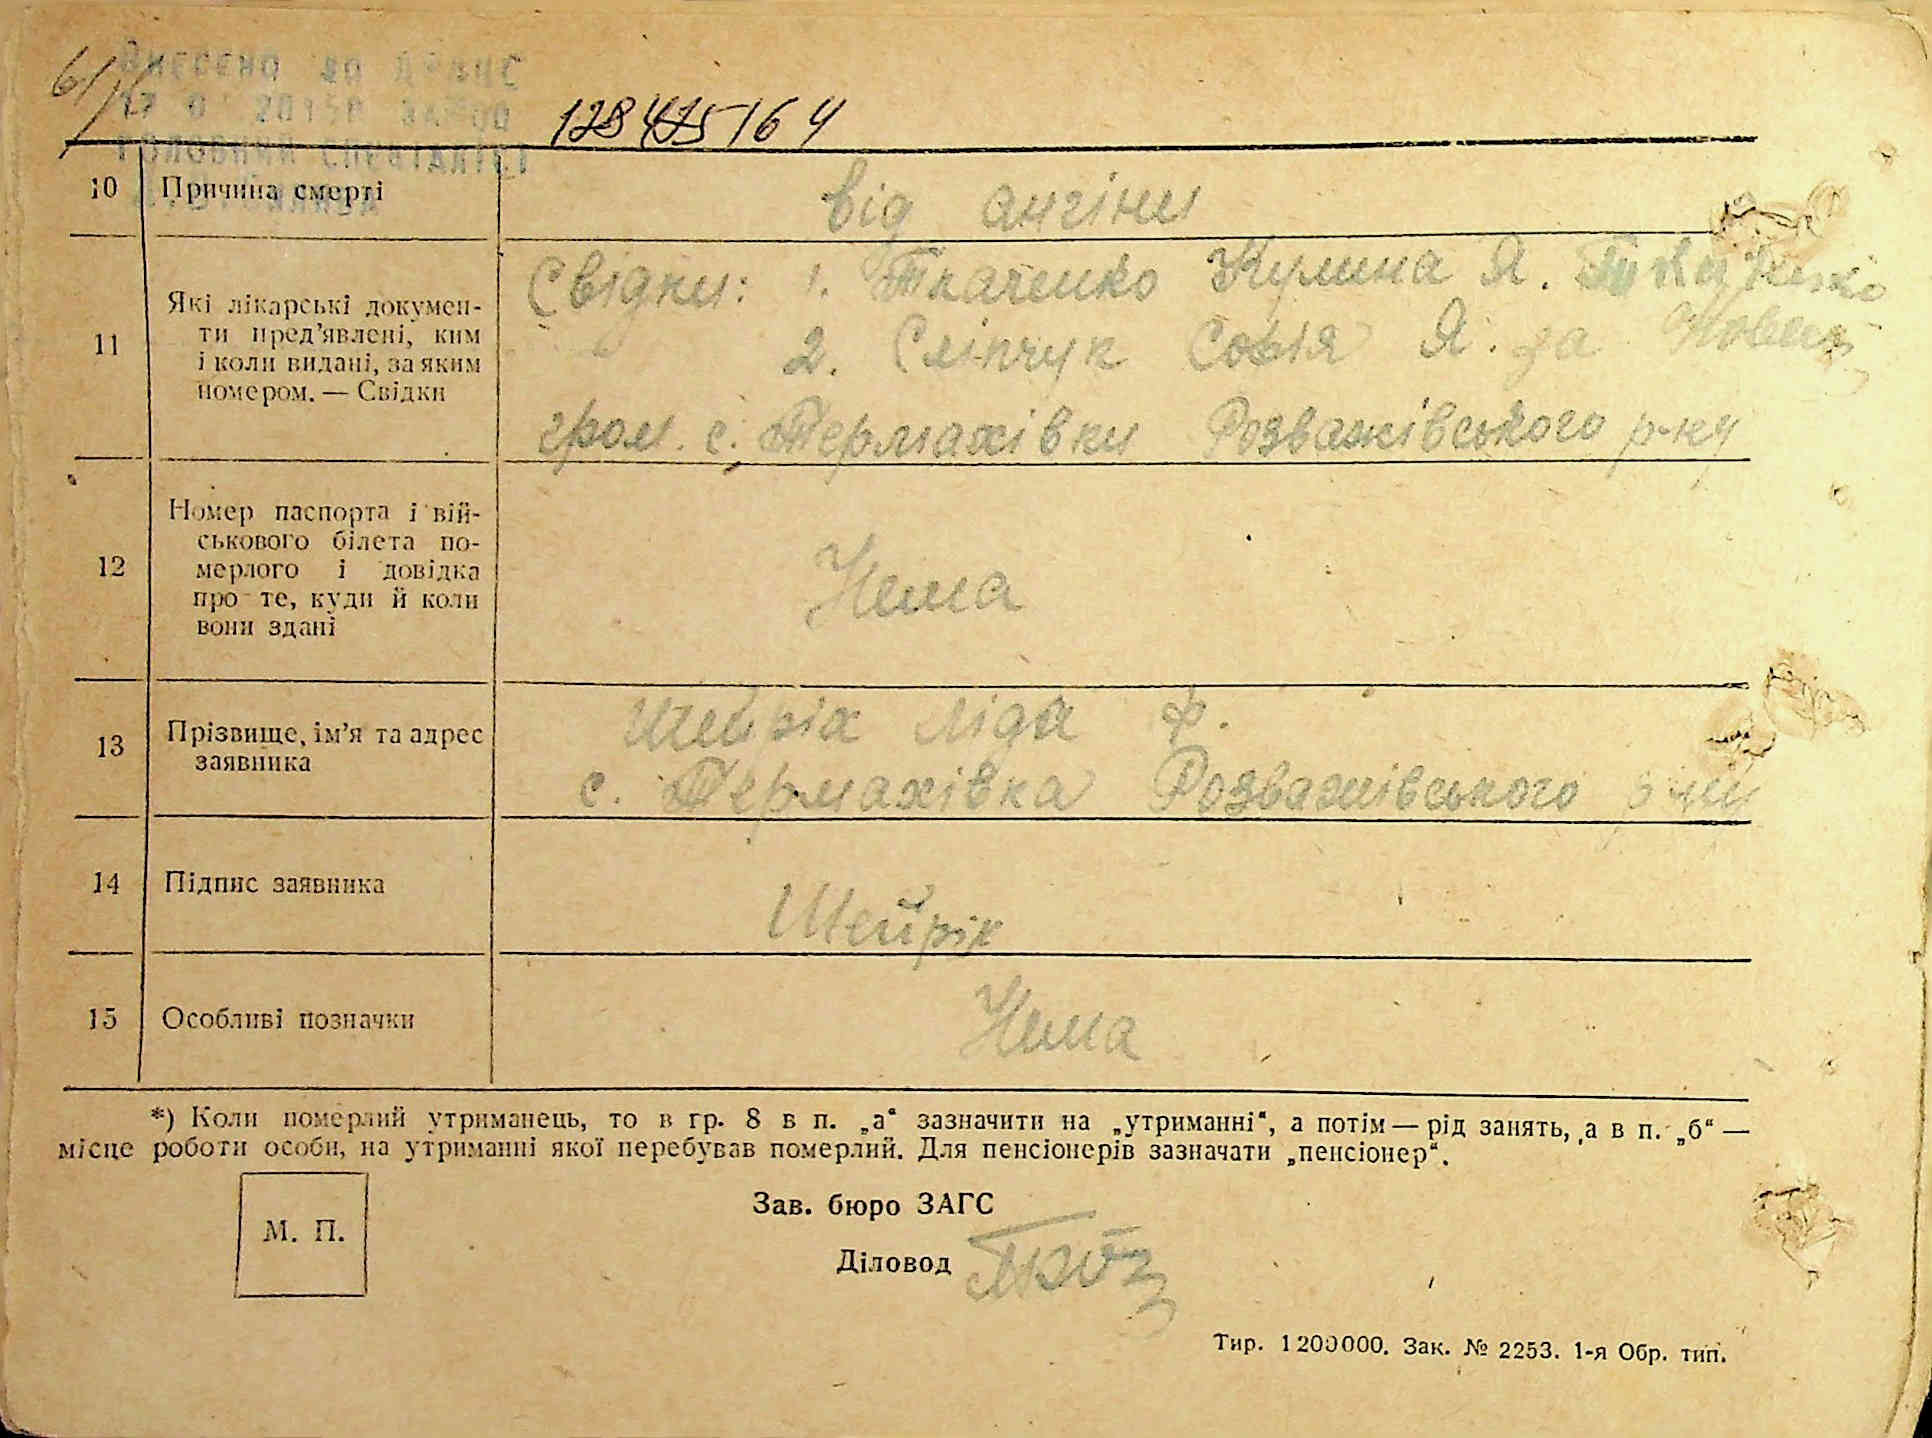 ВНЕСЕНО ДО ДРАЦС
ГОЛОВНИЙ СПЕЦІАЛІСТ
10 Причина смерті від ангіни
11 Які лікарські докумен-
ти пред’явлені, ким
і коли видані, за яким
номером. — Свідки
Свідки: 1. Ткаченко Кулина Я.
2. Сліпчук Софія Я. за
гром. с. Термахівки Розважівського р-ну
12 Номер паспорта і вій-
ськового білета по-
мерлого і довідка
про те, куди й коли
вони здані
Нема
13 Прізвище, ім’я та адрес
заявника
Ліда Ф.
с. Термахівка Розважівського р-ну
14 Підпис заявника Шейрік
15 Особливі позначки Нема
*) Коли померлий утриманець, то в гр. 8 в п. „а“ зазначити на „утриманні“, а потім — рід занять, а в п. „б“ —
місце роботи особи, на утриманні якої перебував померлий. Для пенсіонерів зазначати „пенсіонер“.
М. П.
Зав. бюро ЗАГС
Діловод
Тир. 1200000. Зак. № 2253. 1-я Обр. тип.